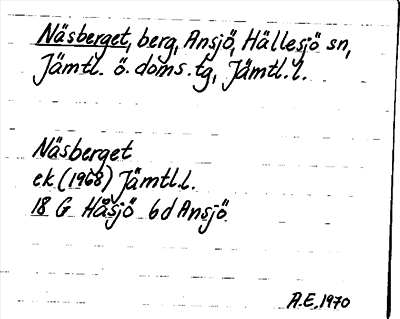 Näsberget, berg, Ansjö, Hällesjö sn,
Jämtl. ö. doms. tg, Jämtl. l.
Näsberget
ek (1968) Jämtl.l.
18 G Håsjö 6d Ansjö
A.E. 1970